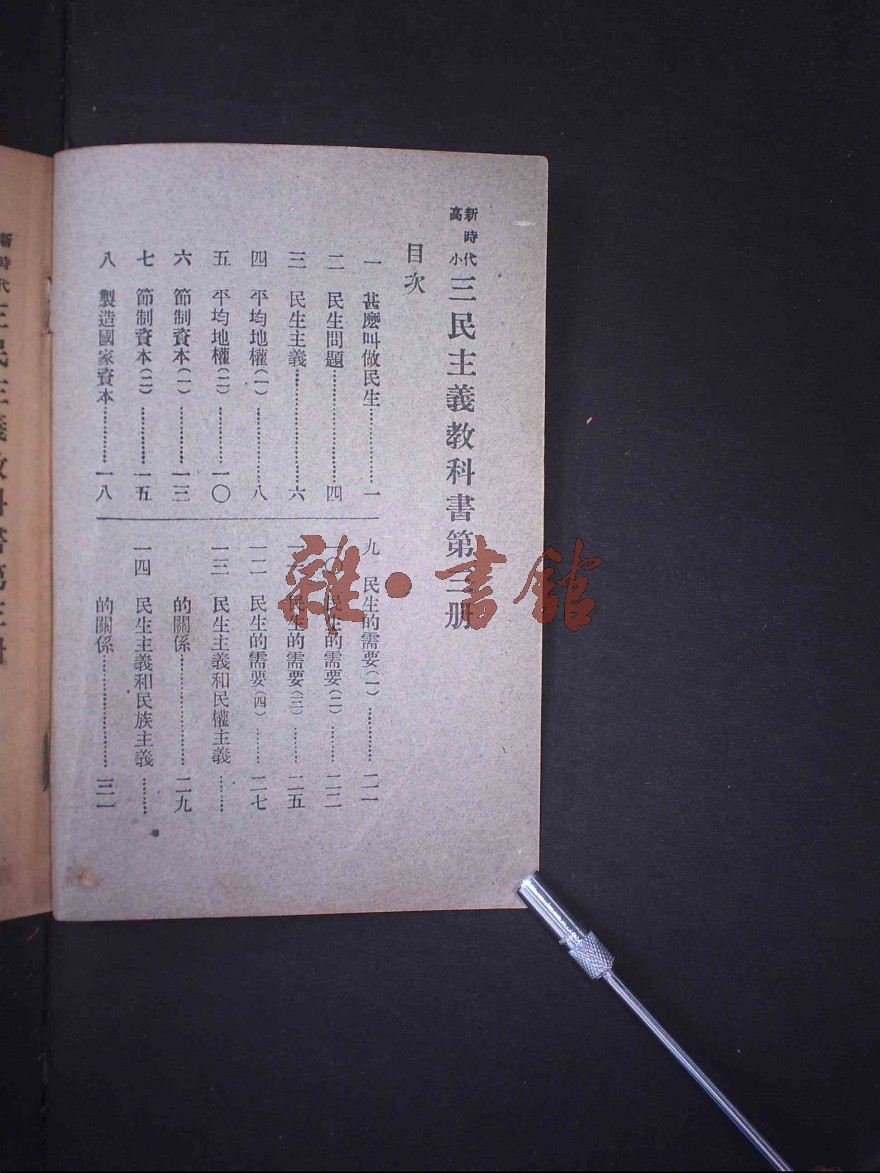 新時代
高小
三民主義教科書第三册
目次
一 甚麽叫做民生………………一
二 民生問題………………四
三 民生主義………………六
四 平均地權(一)……………八
五 平均地權(二)…………一〇
六 節制資本(一)…………一三
七 節制資本(二)…………一五
八 製造國家資本…………一八
九 民生的需要(一)…………二一
一〇 民生的需要(二)………二二
一一 民生的需要(三)………二五
一二 民生的需要(四)………二七
一三 民生主義和民權主義……
的關係………………二九
一四 民生主義和民族主義……
的關係………………三一
新時代
三民主義教科書第三册
雜·書館